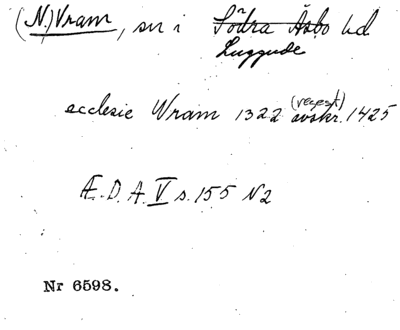 (N.) Vram, sn i Södra Åsbo hd
Luggude
ecclesie Wram 1322 (regest) avskr. 1425
Æ.D.A. V s. 155 N 2
Nr 6598.